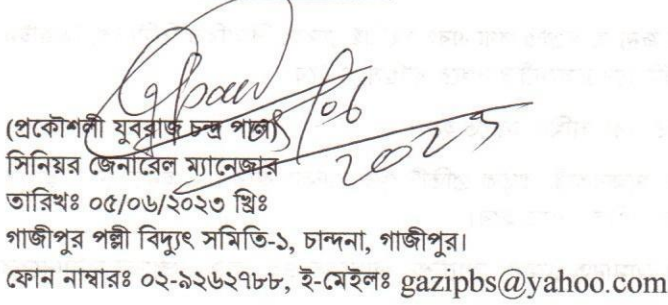 (প্রকৌশলী যুবরাজ চন্দ্র পাল)
সিনিয়র জেনারেল ম্যানেজার
তারিখঃ ০৫/০৬/২০২৩ খ্রিঃ
গাজীপুর পল্লী বিদ্যুৎ সমিতি-১, চান্দনা, গাজীপুর।
ফোন নাম্বারঃ ০২-৯২৬২৭৮৮, ই-মেইলঃ gazipbs@yahoo.com